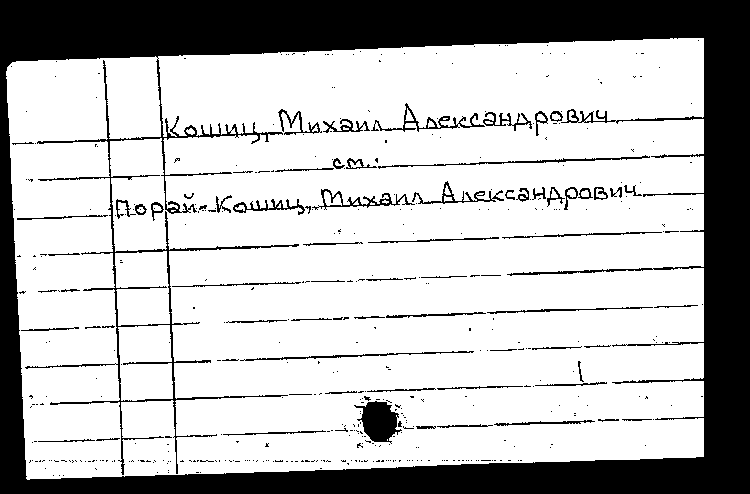 Кошиц, Михаил Александрович
см.:
Порай-Кошиц, Михаил Александрович